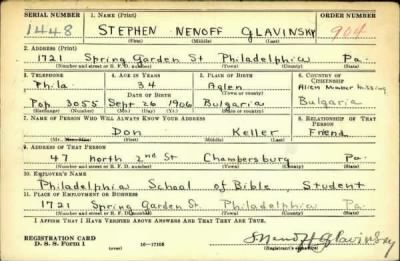 SERIAL NUMBER 1. NAME (Print) ORDER NUMBER
1448 STEPHEN NENOFF GLAVINSKY 904
(First) (Middle) (Last)
2. ADDRESS (Print)
1721 Spring Garden St Philadelphia Pa.
(Number and street or R. F. D. number) (Town) (County) (State)
3. TELEPHONE 4. AGE IN YEARS 5. PLACE OF BIRTH 6. COUNTRY OF CITIZENSHIP
Phila. 34 Aglen Alien Number Missing
DATE OF BIRTH
Pop. 3055 Sept 26 1906 Bulgaria Bulgaria
(Exchange) (Number) (Mo.) (Day) (Yr.) (State or country)
7. NAME OF PERSON WHO WILL ALWAYS KNOW YOUR ADDRESS 8. RELATIONSHIP OF THAT PERSON
Don Keller Friend
(First) (Middle) (Last)
9. ADDRESS OF THAT PERSON
47 North 2nd St Chambersburg Pa.
(Number and street or R. F. D. number) (Town) (County) (State)
10. EMPLOYER'S NAME
Philadelphia School of Bible, Student
11. PLACE OF EMPLOYMENT OR BUSINESS
1721 Spring Garden St. Philadelphia Pa
(Number and street or R. F. D. number) (Town) (County) (State)
I AFFIRM THAT I HAVE VERIFIED ABOVE ANSWERS AND THAT THEY ARE TRUE.
REGISTRATION CARD
D. S. S. Form 1 (over) 16-17105
S Nenoff Glavinsky
(Registrant's signature)